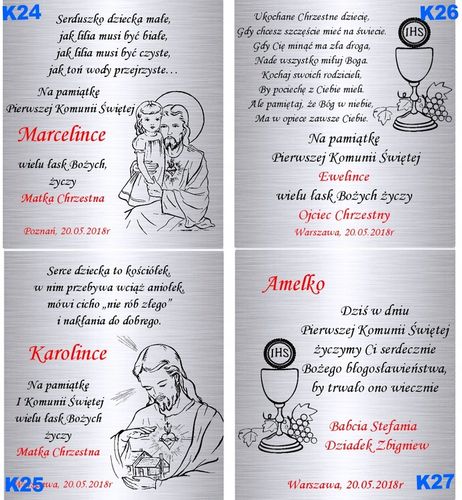 K24
Serduszko dziecka małe,
jak lilia musi być białe,
jak lilia musi być czyste,
jak toń wody przejrzyste…
Na pamiątkę
Pierwszej Komunii Świętej
Marcelince
wielu łask Bożych,
życzy
Matka Chrzestna
Poznań, 20.05.2018r
K26
Ukochane Chrzestne dziecię,
Gdy chcesz szczęście mieć na świecie.
Gdy Cię minąć ma zła droga,
Nade wszystko miłuj Boga.
Kochaj swoich rodzicieli,
By pociechę z Ciebie mieli.
Ale pamiętaj, że Bóg w niebie,
Ma w opiece zawsze Ciebie.
IHS
Na pamiątkę
Pierwszej Komunii Świętej
Ewelince
wielu łask Bożych życzy
Ojciec Chrzestny
Warszawa, 20.05.2018r
Serce dziecka to kościółek,
w nim przebywa wciąż aniołek,
mówi cicho „nie rób złego”
i nakłania do dobrego.
Karolince
Na pamiątkę
I Komunii Świętej
wielu łask Bożych
życzy
Matka Chrzestna
20.05.2018r
K25
Amelko
Dziś w dniu
Pierwszej Komunii Świętej
życzymy Ci serdecznie
Bożego błogosławieństwa,
by trwało ono wiecznie
IHS
Babcia Stefania
Dziadek Zbigniew
Warszawa, 20.05.2018r
K27